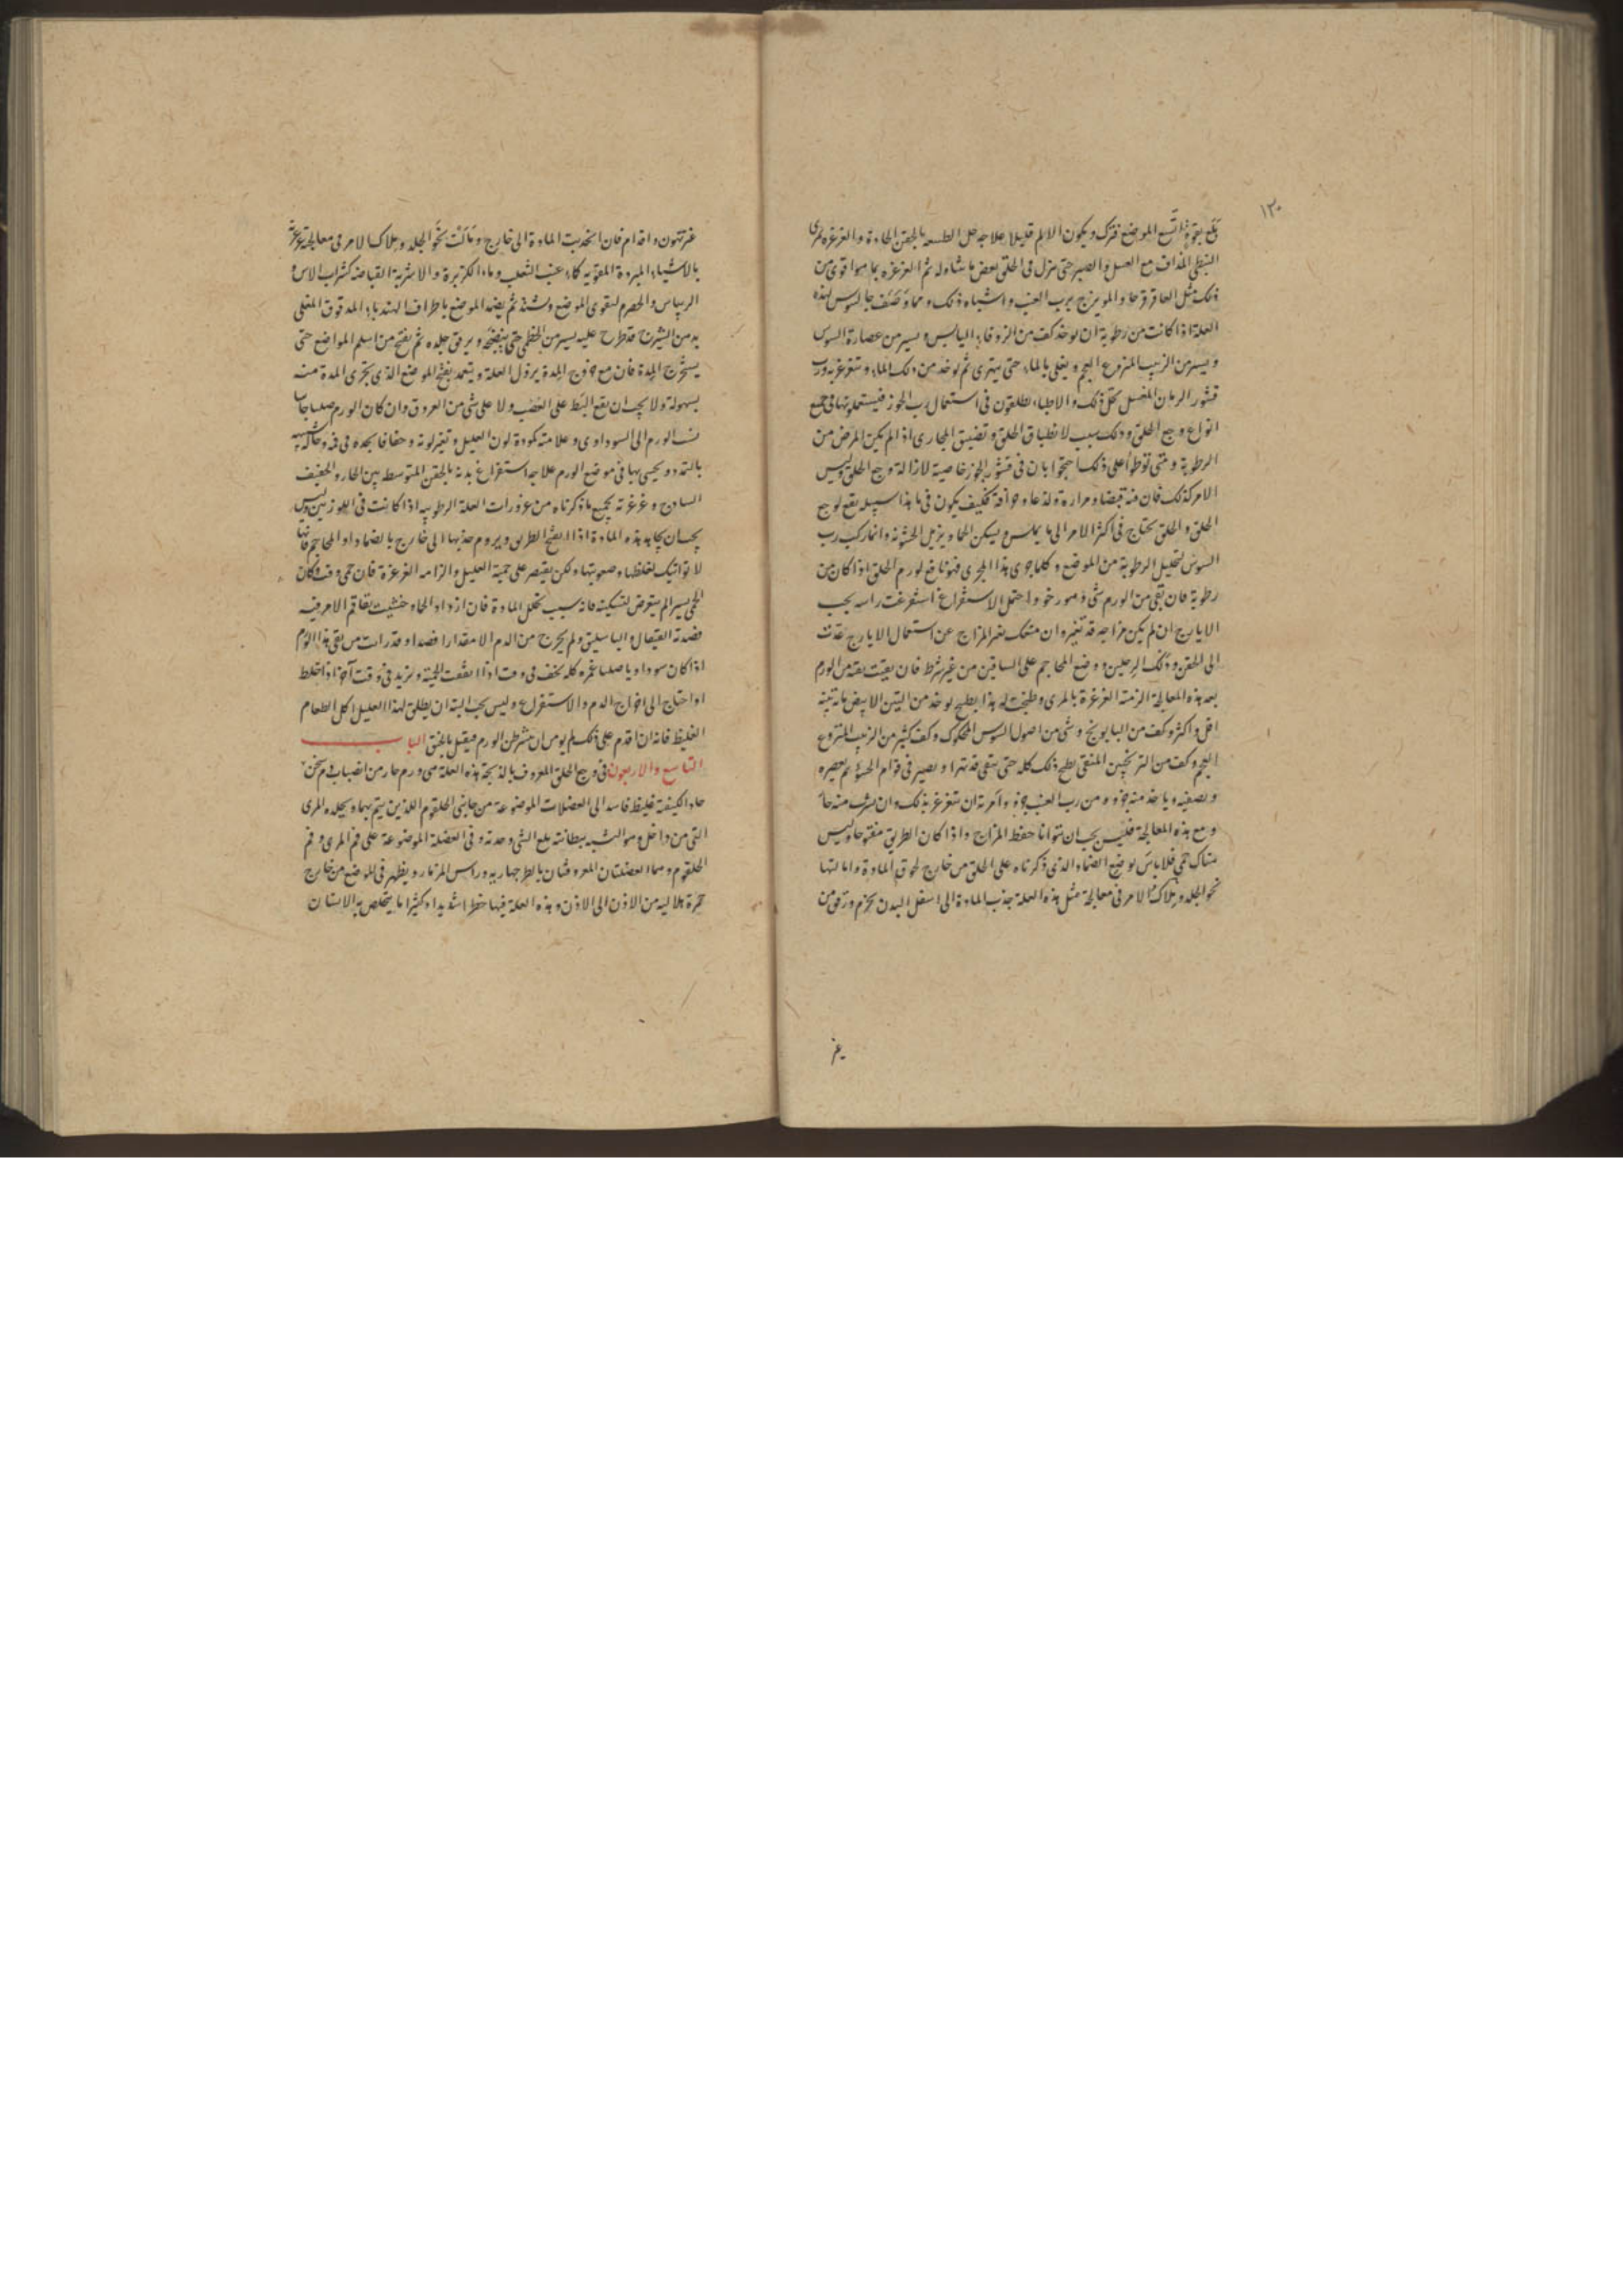 ١٢٠
بلع بقوة اتسع الموضع فترك ويكون الالم قليلا علاجه حل الطبيعة بالحقن الحادة والغرغرة بمرى
النبطى المذاف مع العسل والصبر حتى ينزل فى الحلق بعض ما شاوله ثم الغرغره بما هو اقوى من
ذلك مثل العاقرقرحا والمويزج برب العنب واشباه ذلك ومما وصف جالينوس لهذه
العلة اذا كانت من رطوبة ان يوخذ كف من الزوفاء اليابس ويسير من عصارة السوس
ويسير من الزبيب المنزوع العجم ويغلى بالماء حتى يتهرى ثم يوخذ من ذلك الماء ويتغرغر به ورب
قشور الرمان المغسل يحلل ذلك والاطباء يطلقون فى استعمال رب الجوز فيستعملونها فى جميع
انواع وجع الحلق وذلك سبب لانطباق الحلق وتضييق المجارى اذا لم يكن المرض من
الرطوبة ومتى توطوا على ذلك احتجوا بان فى قشور الجوز خاصية لازالة وجع الحلق وليس
الامر كذلك فان فيه قبضا ومرارة ولذعا وحرافة فكيف يكون فى ما هذا سبيله نفع لوجع
الحلق والحلق يحتاج فى اكثر الامر الى ما يملس ويسكن الحما ويزيل الخشونه وانما ركب رب
السوس لتحليل الرطوبة من الموضع وكلما جرى هذا المجرى فهو نافع لورم الحلق اذا كان من
رطوبة فان بقى من الورم شى وهو رخو واحتمل الاستفراغ استفرغت راسه بحب
الايارج ان لم يكن مزاجه قد تغير وان منعك تغير المزاج عن استعمال الايارج عدت
الى الحقن ودلك الرجلين ووضع المحاجم على الساقين من غير شرط فان بقيت بقية من الورم
بعد هذه المعالجة الزمته الغرغرة بالمرى وطبخت له هذا يطبخ يوخذ من التين الابيض مائة تينة
اقل واكثر وكف من البابونج وشى من اصول السوس المحكوك وكف كثير من الزبيب المنزوع
العجم وكف من الترنجبين المنقى يطبخ ذلك كله حتى يبقى قد تهرا ويصير فى قوام الحسو ثم يعصره
ويصفيه وياخذ منه جزو ومن رب العنب جزو وامرته ان يتغرغر بذلك وان يشرب منه حارا
ومع هذه المعالجة فليس يجب ان نتوانا حفظ المزاج واذا كان الطريق مفتوحا وليس
هناك حمى فلا باس بوضع الضماد الذى ذكرناه على الحلق من خارج لحوق المادة وامالتها
نحو الجلد وملاك الامر فى معالجة مثل هذه العلة جذب المادة الى اسفل البدن بحزم ورفق من
غير
غير تهون واقدام فان انجذبت المادة الى خارج ومالت نحو الجلد وملاك الامر فى معالجة غرغرته
بالاشياء المبردة المقويه كماء عنب الثعلب وماء الكزبرة والاشربة القباضه كشراب الاس و
الريباس والحصرم لتقوى الموضع وشده ثم يضمد الموضع باطراف الهندباء المدقوق المغلى
بدهن الشيرج قد طرح عليه يسير من الخطمى حتى ينضجه ويرق جلده ثم يفتح من اسلم المواضع حتى
يستخرج المدة فان مع خروج المدة يزول العلة ويتعمد بفتح الموضع الذى يجرى المدة منه
بسهولة ولا يجب ان يقع البط على العصب ولا على شى من العروق وان كان الورم صلبا جاسيا
نسب الورم الى السوداوى وعلامته كمودة لون العليل وتغير لونه وجفافا يجده فى فيه وحالة شبيهه
بالتمدد ويحس بها فى موضع الورم علاجه استفراغ بدنه بالحقن المتوسط بين الحار والخفيف
الساذج وغرغرته بجميع ما ذكرناه من غرورات العلة الرطوبيه اذا كانت فى اللوزتين وليس
يجب ان يجابه هذه المادة اذا انفتح الطريق ويروم جذبها الى خارج بالضماد او المحاجم فانها
لا تواتيك لغلظها وصعوبتها ولكن يقتصر على حمية العليل والزامه الغرغرة فان حمى وقت وكان
الحمى يسيرا لم يتعرض لتسكينه فانه سبب تحلل المادة فان ازداد الحما وخشيت تفاقم الامر فيه
فصدته القيفال والباسليق ولم يخرج من الدم الا مقدارا قصدا وقد رايت من بقى هذا الورم
اذا كان سوداويا صلبا عمره كله يخف فى وقت اذا اتفقت الحمية ويزيد فى وقت آخر اذا خلط
او احتاج الى اخراج الدم والاستفراغ وليس يجب البته ان يطلق لهذا العليل اكل الطعام
الغليظ فانه ان اقدم على ذلك لم يومن ان يشرطن الورم فيقتل بالخنق الباب
التاسع والاربعون فى وجع الحلق المعروف بالذبحة هذه العلة هى ورم حار من انصباب دم سخن
حاد الكيفية غليظ فاسد الى العضلات الموضوعة من جانبى الحلقوم اللذين يتم بهما وبجلده المرى
التى من داخل وهو الشبيه ببطانته بلع الشى وحدته وفى العضلة الموضوعة على فم المرى وفم
الحلقوم وهما العضلتان المعروفتان بالطرجهاريه وراس المزمار ويظهر فى الموضع من خارج
حمرة هلاليه من الاذن الى الاذن وهذه العلة فيها خطر شديد وكثيرا ما يتخلص به الانسان